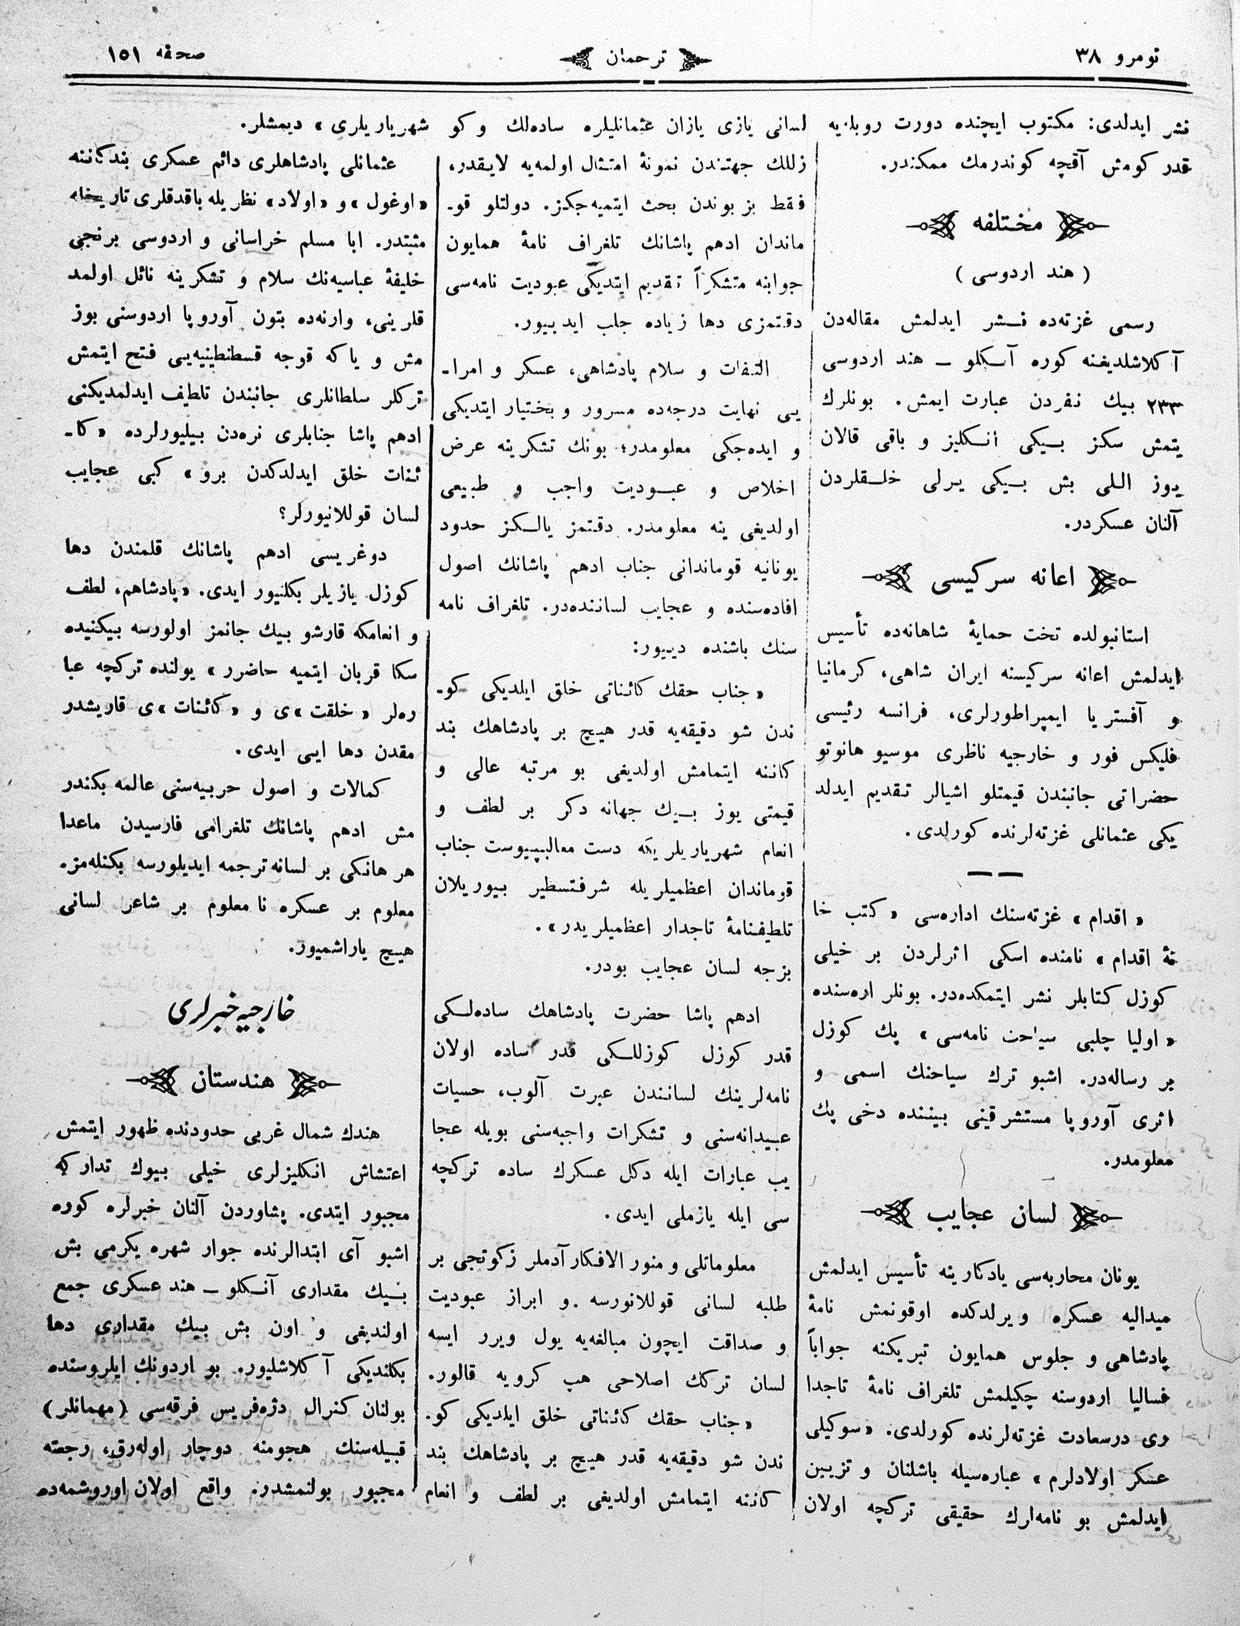 تومرو ٣٨
ترجمان
صحفه ١٥١
نشر ايدلدى: مكتوب ايچنده دورت روبليه
قدر كومش آقچه كوندرمك ممكندر.
مختلفه
( هند اردوسى )
رسمى غزته‌ده نشر ايدلمش مقاله‌دن
آكلاشلديغنه كوره آنكلو ـ هند اردوسى
٢٣٣ بيك نفردن عبارت ايمش. بونلرك
يتمش سكز بيكى انكليز و باقى قالان
يوز اللى بش بيكى يرلى خلقلردن
آلنان عسكردر.
اعانه سركيسى
استانبولده تخت حمايهٔ شاهانه‌ده تأسيس
ايدلمش اعانه سركيسنه ايران شاهى، كرمانيا
و آفستريا ايمپراطورلرى، فرانسه رئيسى
فليكس فور و خارجيه ناظرى موسيو هانوتو
حضراتى جانبندن قيمتلو اشيالر تقديم ايدلد
يكى عثمانلى غزته‌لرنده كورلدى.
« اقدام » غزته‌سنك اداره‌سى « كتب خا
نهٔ اقدام » نامنده اسكى اثرلردن بر خيلى
كوزل كتابلر نشر ايتمكده‌در. بونلر اره‌سنده
« اوليا چلبى سياحت نامه‌سى » پك كوزل
بر رساله‌در. اشبو ترك سياحنك اسمى و
اثرى آوروپا مستشرقينى بيننده دخى پك
معلومدر.
لسان عجايب
يونان محاربه‌سى يادكارينه تأسيس ايدلمش
ميداليه عسكره ويرلدكده اوقونمش نامهٔ
پادشاهى و جلوس همايون تبريكنه جواباً
فساليا اردوسنه چكيلمش تلغراف نامهٔ تاجدا
رى درسعادت غزته‌لرنده كورلدى. « سوكيلى
عسكر اولادلرم » عباره‌سيله باشلنان و تزيين
ايدلمش بو نامه‌لرك حقيقى تركچه اولان
لسانى يازى يازان عثمانليلره ساده‌لك و كو
زللك جهتندن نمونهٔ امتثال اولمه‌يه لايقدر،
فقط بز بوندن بحث ايتميه‌جكز. دولتلو قو‍ـ
ماندان ادهم پاشانك تلغراف نامهٔ همايون
جوابنه متشكراً تقديم ايتديكى عبوديت نامه‌سى
دقتمزى دها زياده جلب ايدييور.
التفات و سلام پادشاهى، عسكر و امراـ
يى نهايت درجه‌ده مسرور و بختيار ايتديكى
و ايده‌جكى معلومدر؛ بونك تشكرينه عرض
اخلاص و عبوديت واجب و طبيعى
اولديغى ينه معلومدر. دقتمز يالكز حدود
يونانيه قوماندانى جناب ادهم پاشانك اصول
افاده‌سنده و عجايب لساننده‌در. تلغراف نامه
سنك باشنده دييور:
« جناب حقك كائناتى خلق ايلديكى كو‍ـ
ندن شو دقيقه‌يه قدر هيچ بر پادشاهك بند
كاننه ايتمامش اولديغى بو مرتبه عالى و
قيمتى يوز بيك جهانه دكر بر لطف و
انعام شهرياريلريكه دست معاليپيوست جناب
قوماندان اعظميلريله شرفتسطير بيوريلان
تلطيفنامهٔ تاجدار اعظميلريدر ».
بزجه لسان عجايب بودر.
ادهم پاشا حضرت پادشاهك ساده‌لكى
قدر كوزل كوزللكى قدر ساده اولان
نامه‌لرينك لسانندن عبرت آلوب، حسيات
عبيدانه‌سنى و تشكرات واجبه‌سنى بويله عجا
يب عبارات ايله دكل عسكرك ساده تركچه
سى ايله يازملى ايدى.
معلوماتلى و منور الافكار آدملر زكوتجى بر
طلبه لسانى قوللانورسه و ابراز عبوديت
و صداقت ايچون مبالغه‌يه يول ويرر ايسه
لسان تركك اصلاحى هپ كرويه قالور.
« جناب حقك كائناتى خلق ايلديكى كو‍ـ
ندن شو دقيقه‌يه قدر هيچ بر پادشاهك بند
كاننه ايتمامش اولديغى بر لطف و انعام
شهرياريلرى » ديمشلر.
عثمانلى پادشاهلرى دائم عسكرى بندكاننه
« اوغول » و « اولاد » نظريله باقدقلرى تاريخله
مثبتدر. ابا مسلم خراسانى و اردوسى برنجى
خليفهٔ عباسيه‌نك سلام و تشكرينه نائل اولمد
قلرينى، وارنه‌ده بتون آوروپا اردوسنى بوز
مش و ياكه قوجه قسطنطينيه‌يى فتح ايتمش
تركلر سلطانلرى جانبندن تلطيف ايدلمديكنى
ادهم پاشا جنابلرى نره‌دن بيليورلرده « كاـ
ئنات خلق ايدلدكدن برو » كبى عجايب
لسان قوللانيورلر؟
دوغريسى ادهم پاشانك قلمندن دها
كوزل يازيلر بكلنيور ايدى. « پادشاهم، لطف
و انعامكه قارشو بيك جانمز اولورسه بيكنيده
سكا قربان ايتميه حاضرر » يولنده تركچه عبا
ره‌لر « خلقت »ى و « كائنات »ى قاريشدر
مقدن دها ايى ايدى.
كمالات و اصول حربيه‌سنى عالمه بكندر
مش ادهم پاشانك تلغرامى فارسيدن ماعدا
هر هانكى بر لسانه ترجمه ايديلورسه بكنله‌مز.
معلوم بر عسكره نا معلوم بر شاعر لسانى
هيچ ياراشميور.
خارجيه خبرلرى
هندستان
هندك شمال غربى حدودنده ظهور ايتمش
اغتشاش انكليزلرى خيلى بيوك تداركه
مجبور ايتدى. پشاوردن آلنان خبرلره كوره
اشبو آى ابتدالرنده جوار شهره يكرمى بش
بيك مقدارى آنكلو ـ هند عسكرى جمع
اولنديغى و اون بش بيك مقدارى دها
بكلنديكى آكلاشليور. بو اردونك ايلروسنده
بولنان كنرال دژه‌فريس فرقه‌سى (مهمانلر)
قبيله‌سنك هجومنه دوچار اوله‌رق، رجعته
مجبور بولنمشدر. واقع اولان اوروشمه‌ده